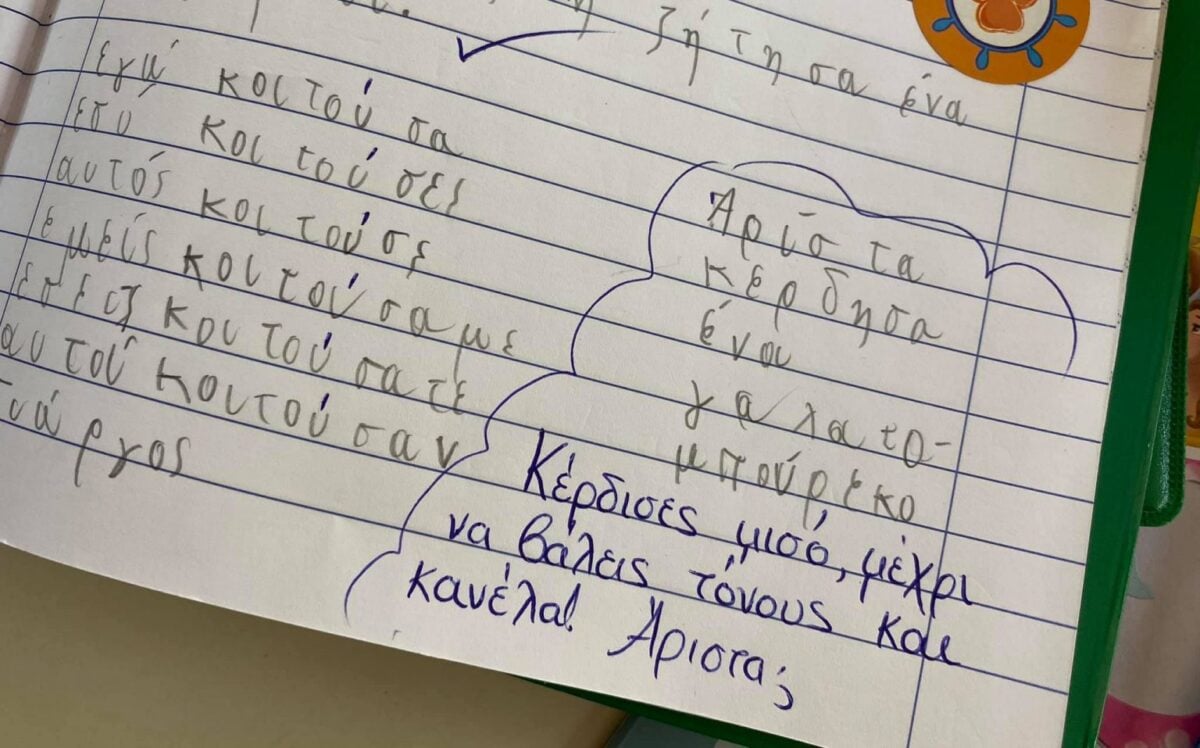 ζή τη σα ένα
εγώ κοι τού σα
εσυ κοι τού σες
αυτός κοι τού σε
εμείς κοι τού σα με
εσείς κοι τού σα τε
αυτοί κοιτού σαν
Άρίσ τα
κέρ δησα
ένα
γα λα το-
μπούρεκο
Κέρδισες μισό, μέχρι
να βάλεις τόνους και
κανέλα! Άριστα;